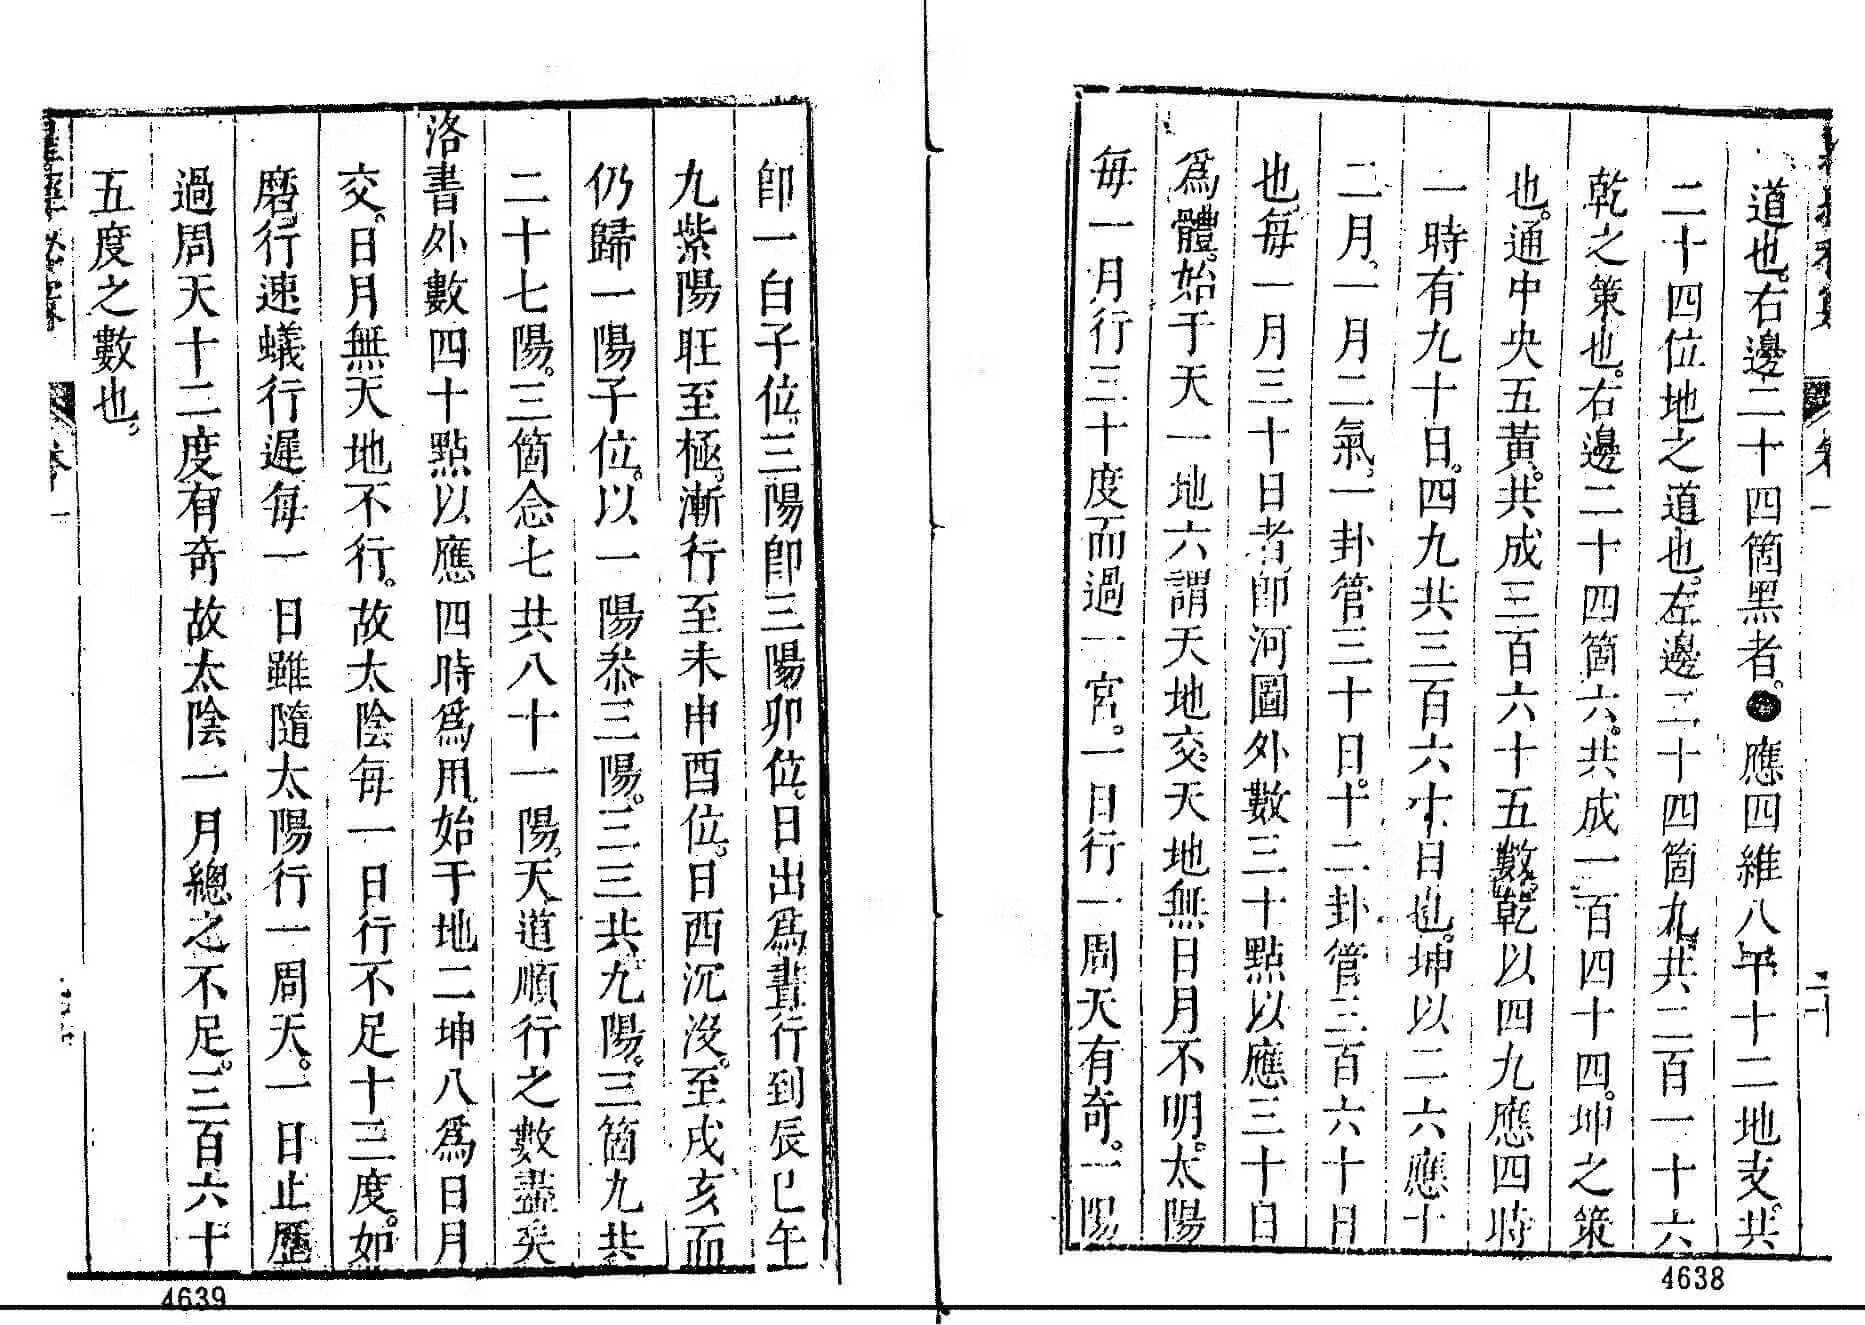 道也。右邊二十四箇黑者。●應四維八干十二地支。共
二十四位地之道也。左邊二十四箇九。共二百一十六
乾之策也。右邊二十四箇六。共成一百四十四。坤之策
也。通中央五黃。共成三百六十五數。乾以四九應四時
一時有九十日。四九共三百六十日也。坤以二六應十
二月。一月二氣。一卦管三十日。十二卦管三百六十日
也。每一月三十日者。卽河圖外數三十點以應三十日
爲體。始于天一地六謂天地交。天地無日月不明。太陽
每一月行三十度而過一宮。一日行一周天有奇。一陽
4638
卽一白子位。三陽卽三陽卯位。日出爲晝行到辰巳午
九紫陽旺至極。漸行至未申酉位。日西沉沒。至戌亥而
仍歸一陽子位。以一陽叅三陽。三三共九陽。三箇九共
二十七陽。三箇念七共八十一陽。天道順行之數盡矣
洛書外數四十點以應四時爲用。始于地二坤八爲日月
交。日月無天地不行。故太陰每一日行不足十三度。如
磨行速蟻行遲每一日雖隨太陽行一周天。一日止歷
過周天十二度有奇故太陰一月總之不足。三百六十
五度之數也。
卷一
4639